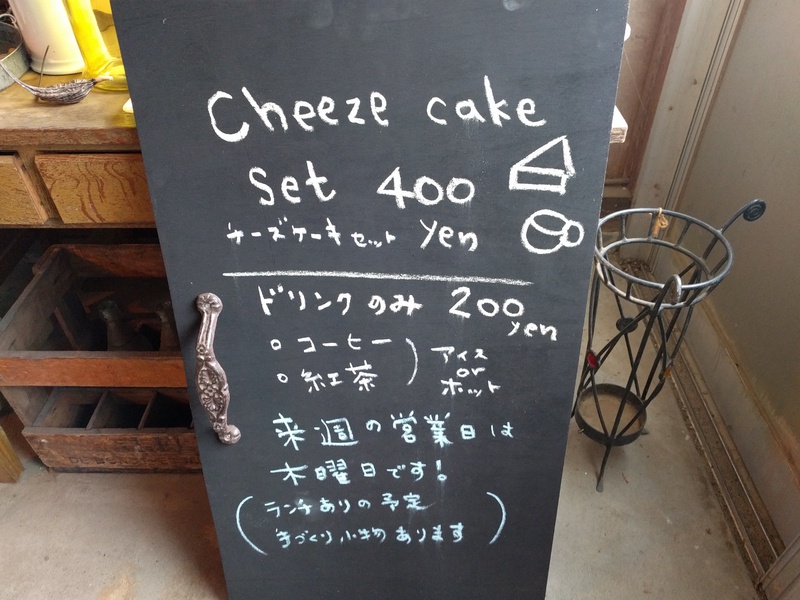 Cheeze cake
set 400
チーズケーキセット yen
ドリンクのみ 200
yen
○ コーヒー
○ 紅茶
アイス
or
ホット
来週の営業日は
木曜日です!
(ランチありの予定
手づくり小物あります)